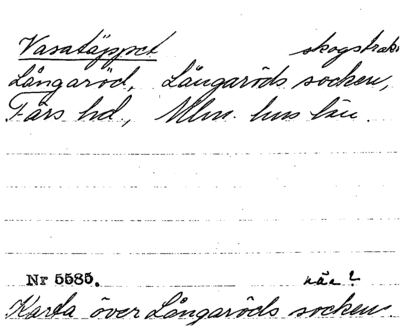 Vasatäppet skogstrakt
Långaröd, Långaröds socken,
Färs hd., Mlm. hus län.
Nr 5585. när?
Karta över Långaröds socken.